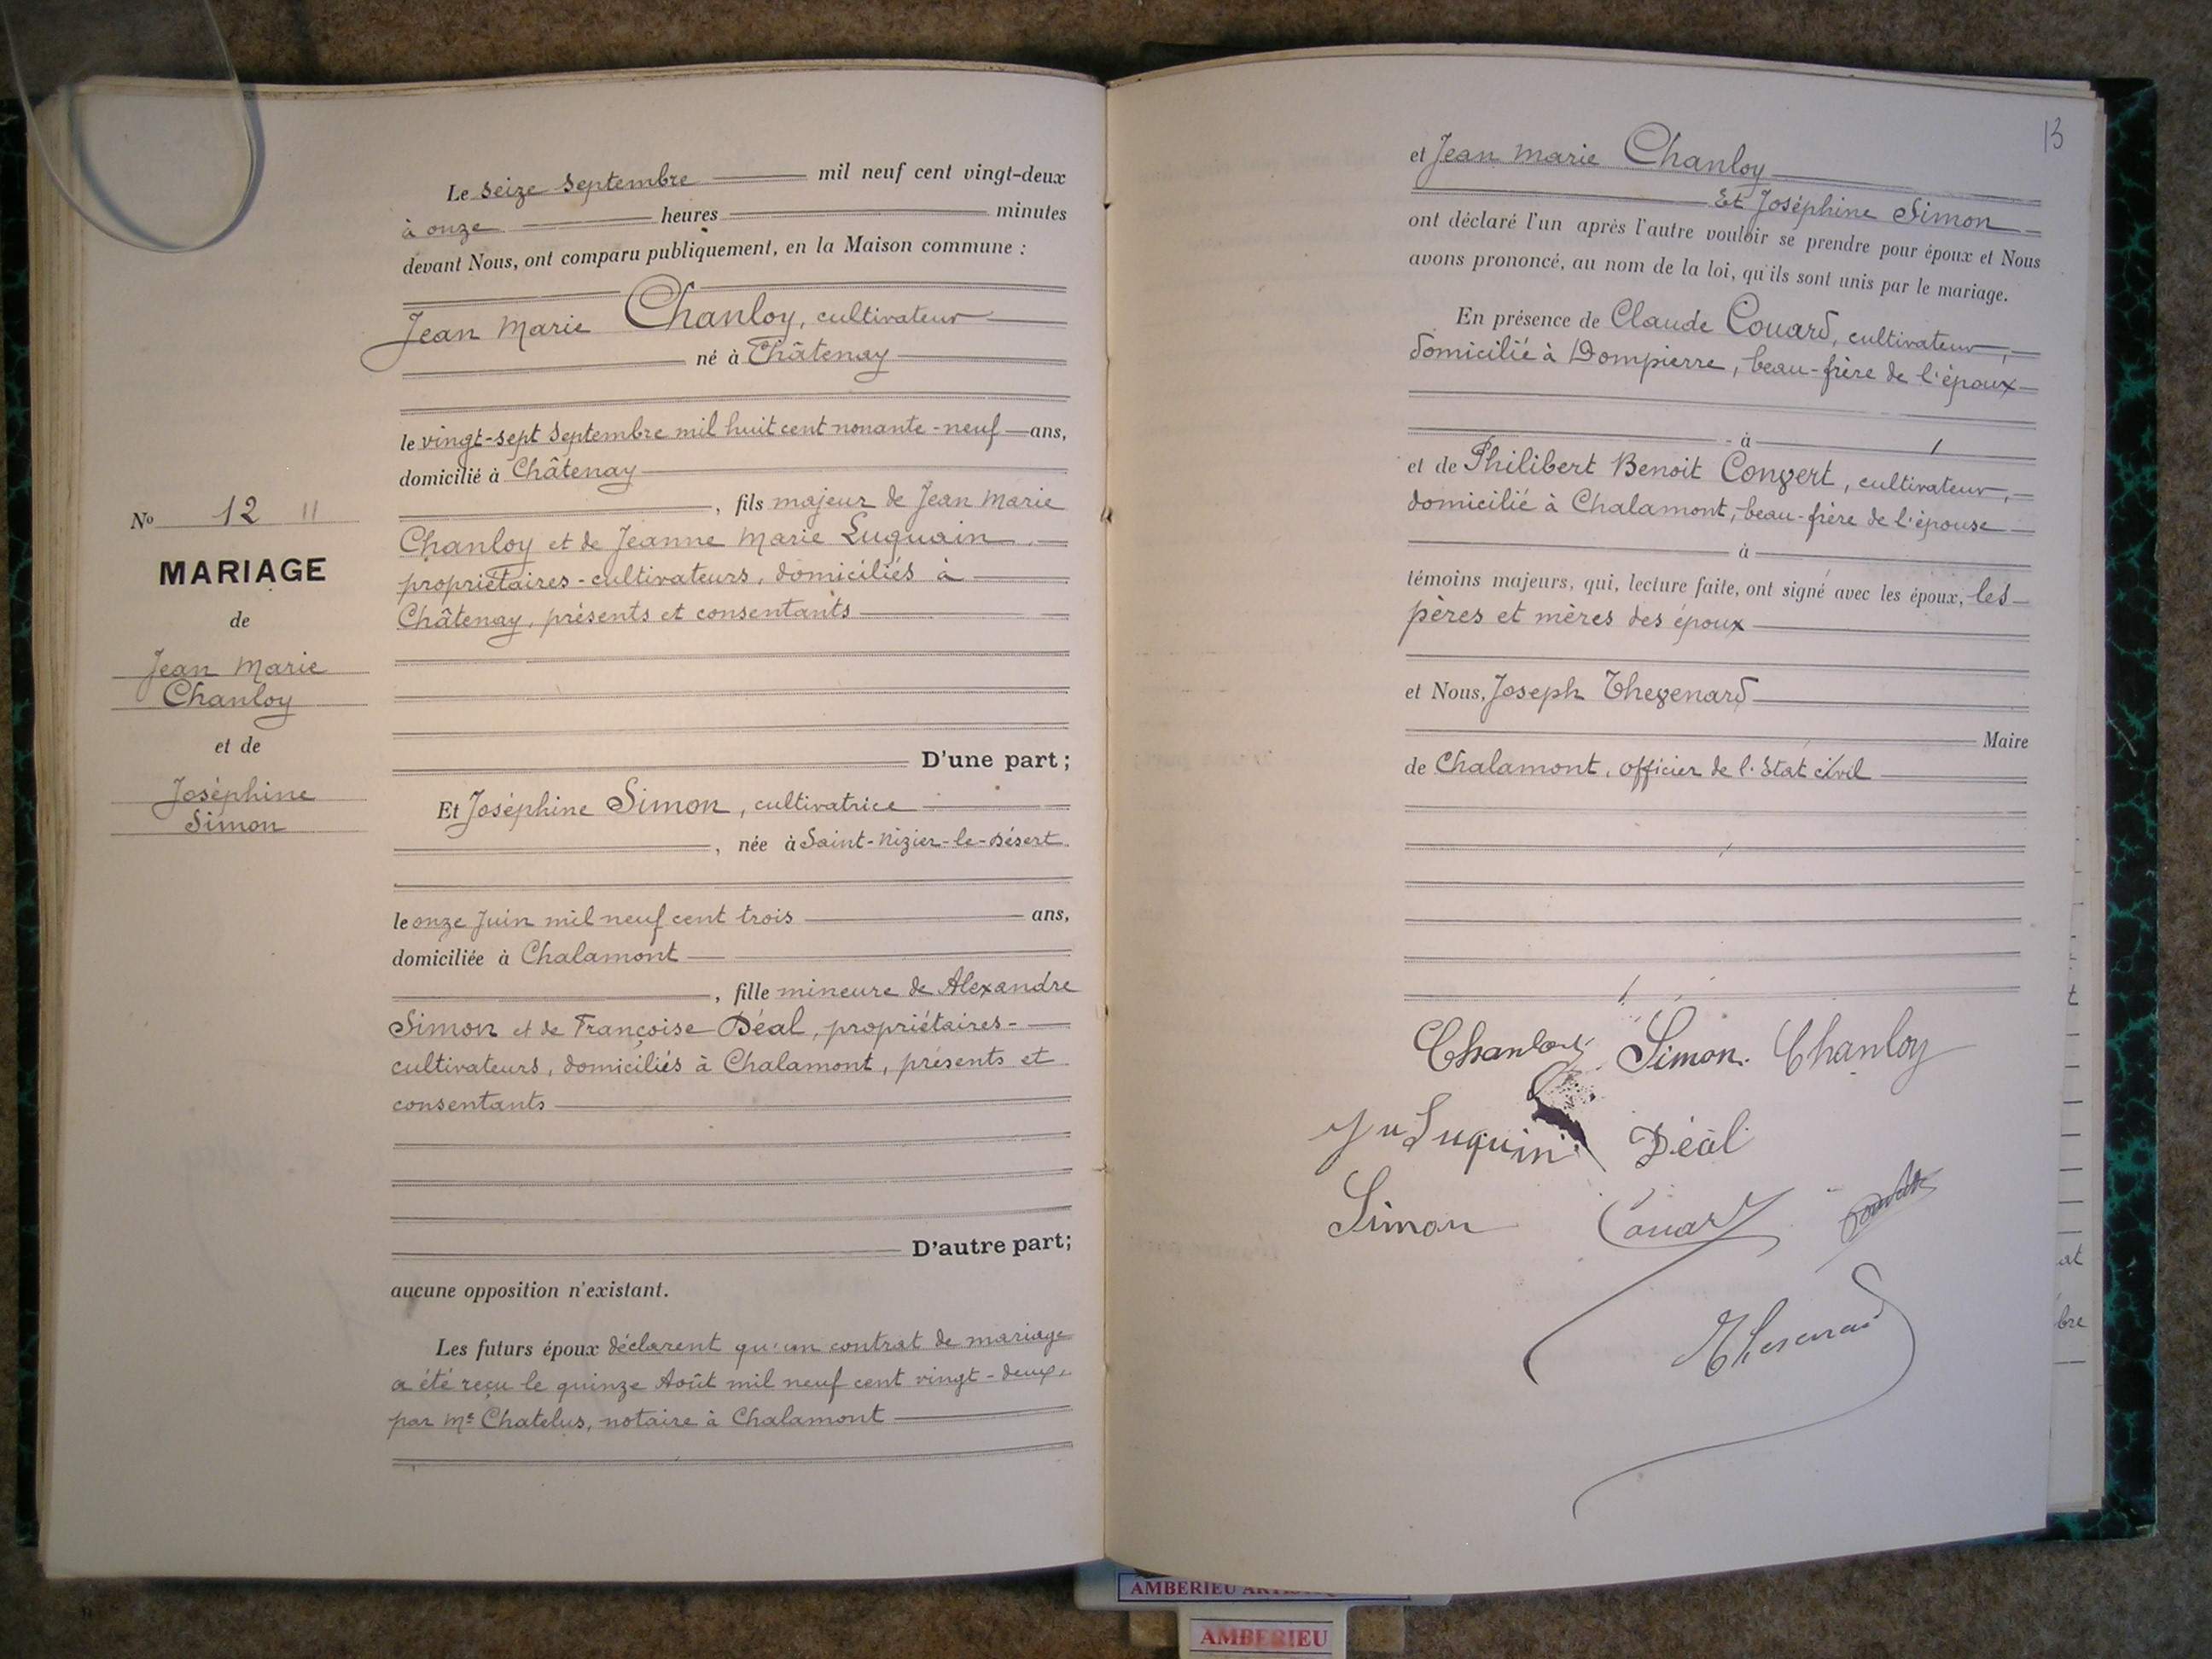 Le seize Septembre mil neuf cent vingt-deux
à onze heures minutes
devant Nous, ont comparu publiquement, en la Maison commune :
Jean Marie Chanloy, cultivateur
né à Châtenay
le vingt-sept Septembre mil huit cent nonante-neuf ans,
domicilié à Châtenay
, fils majeur de Jean Marie
Chanloy et de Jeanne Marie Luquain
propriétaires-cultivateurs, domiciliés à
Châtenay, présents et consentants
D'une part ;
Et Joséphine Simon, cultivatrice
, née à Saint-Nizier-le-Désert
le onze Juin mil neuf cent trois ans,
domiciliée à Chalamont
, fille mineure de Alexandre
Simon et de Françoise Déal, propriétaires-
cultivateurs, domiciliés à Chalamont, présents et
consentants
D'autre part;
aucune opposition n'existant.
Les futurs époux déclarent qu'un contrat de mariage
a été reçu le quinze Août mil neuf cent vingt-deux,
par Me Chatelus, notaire à Chalamont
No 12 11
MARIAGE
de
Jean Marie
Chanloy
et de
Joséphine
Simon
13
et Jean Marie Chanloy
Et Joséphine Simon
ont déclaré l'un après l'autre vouloir se prendre pour époux et Nous
avons prononcé, au nom de la loi, qu'ils sont unis par le mariage.
En présence de Claude Couard, cultivateur,
domicilié à Dompierre, beau-frère de l'époux
à
et de Philibert Benoit Convert, cultivateur,
domicilié à Chalamont, beau-frère de l'épouse
à
témoins majeurs, qui, lecture faite, ont signé avec les époux, les
pères et mères des époux
et Nous, Joseph Thevenard
Maire
de Chalamont, officier de l'État civil
Chanloy Simon. Chanloy
Luquin Déal
Simon Couard
Thevenard
t
at
bre
AMBERIEU
AMBERIEU